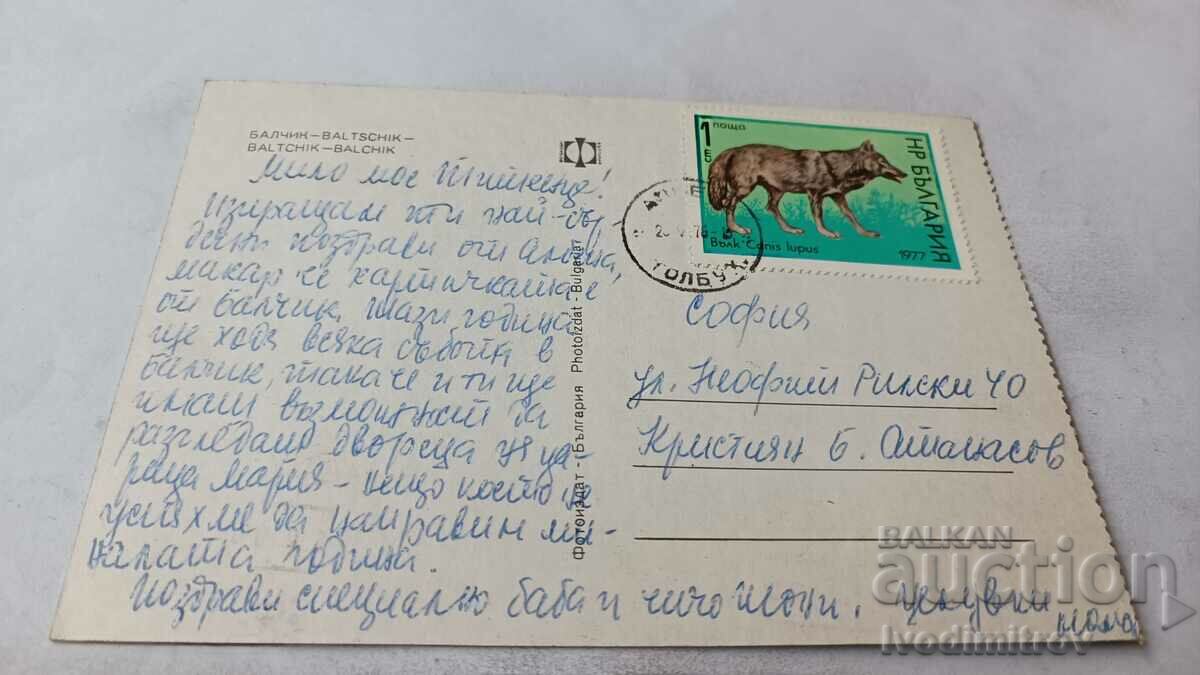 БАЛЧИК—BALTSCHIK—
BALTCHIK—BALCHIK
Мило мое
Изпращам ти най-сър
дечни поздрави от Албена,
макар че картичката е
от Балчик. Тази година
ще ходя всяка събота в
Балчик, така че и ти ще
имаш възможност да
разгледаш двореца на ца-
рица Мария - нещо което не
успяхме да направим ми-
налата година.
Поздрави специално баба и чичо Тони. Целувки
мама
Фотоиздат - България Photoizdat - Bulgaria
1
поща
НР БЪЛГАРИЯ
Вълк Canis lupus
1977
ТОЛБУХ
София
ул. Неофит Рилски 40
Кристиян Б. Атанасов
BALKAN
auction
ivodimitrov